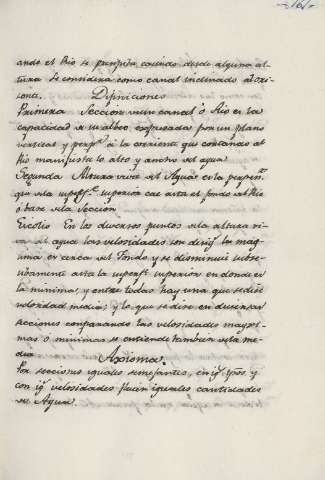 161
ando el Rio se precipita cayendo desde alguna al-
tura se considera como canal inclinado al ori-
zonte. Difiniciones
Primera Seccion de un canal ò Rio es la
capacidad de su albeo expresada por un plano
vertical y perp.r à la corriente que cortando al
Rio manifieste lo alto y ancho del agua
Segunda Altura viva del Agua es la perpen.r
que de la superf.e superior cae asta el fondo del Rio
ò base de la Seccion
Escolio En los diversos puntos de la altura vi-
va del agua las velosidades son desig.s la mag-
ima es cerca del Fondo y se disminuie subse-
sibamente asta la superf.e superior en donde es
la minima; y entre todas hay una que se dise
velosidad media; y lo que se dise en diversas
secciones comparando las velosidades maxi-
mas ò minimas se entiende tambien de la me-
dia Axioma.
Por secciones iguales semejantes, en ig.s tpos y
con ig.s velosidades fluien iguales cantidades
de Agua.